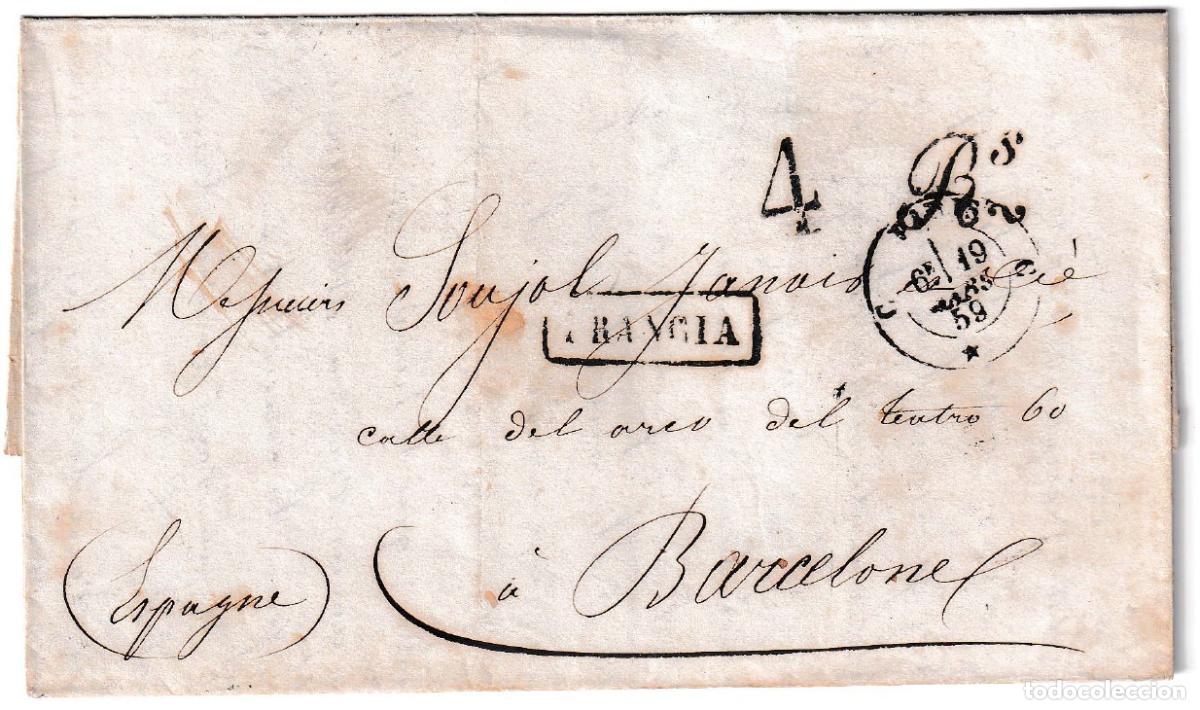 4 Rs
6E 19
MARS
59
Messieurs Soujol Janois & Cié
FRANCIA
calle del arco del teatro 60
à Barcelone
Espagne
todocoleccion